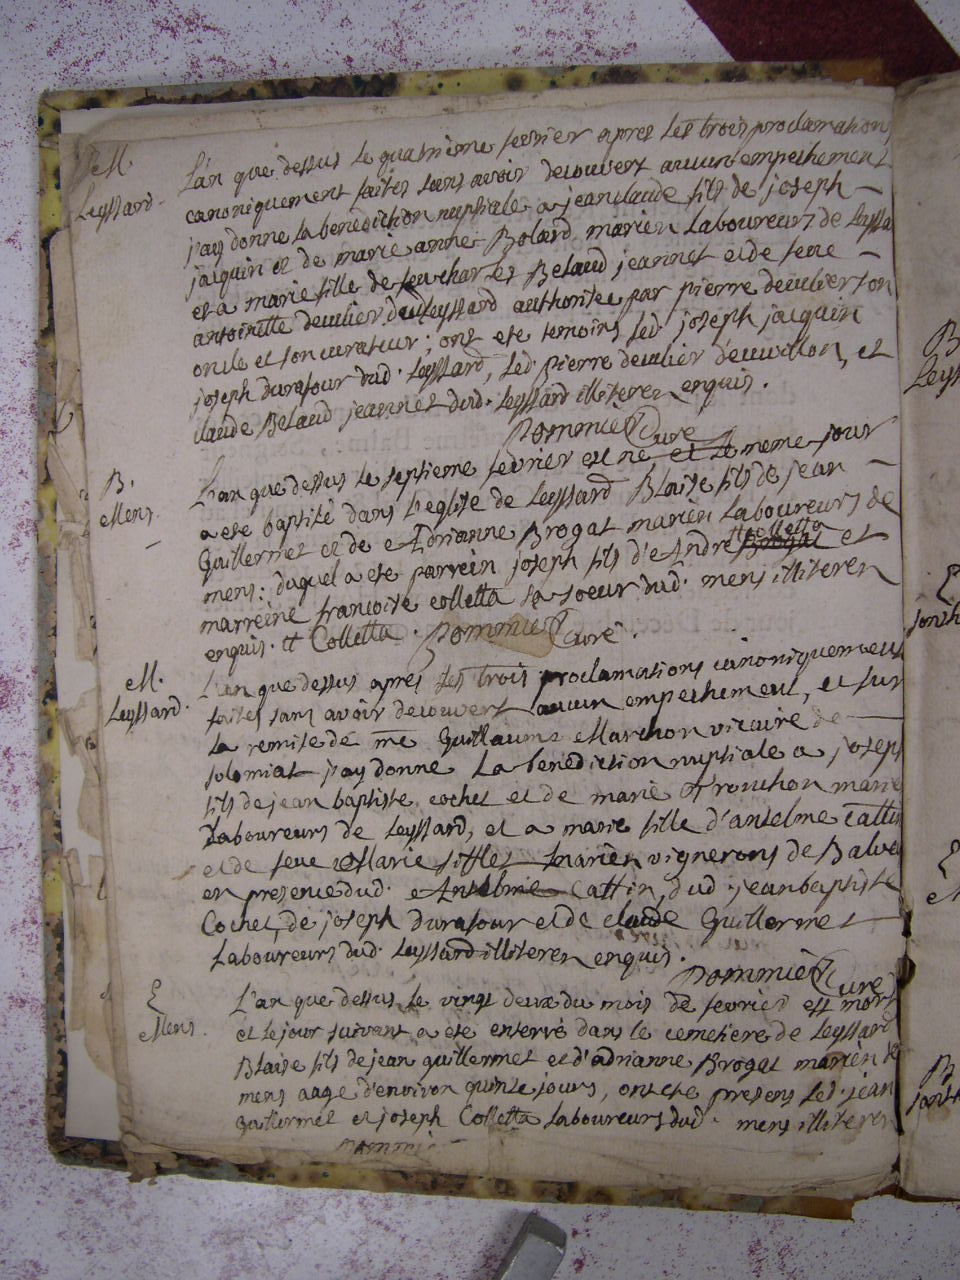 M.
Leyssard.
L'an que dessus le quatrieme fevrier apres les trois proclamations
canoniquement faites sans avoir decouvert aucun empechement
j'ay donne la benediction nuptiale a jean claude fils de joseph
jaiquin et de marie anne Bolard mariën Laboureurs de Leyssa
et a marie fille de feu charles Belaud jeannet et de feue
antoinette deculier dud Leyssard authorite par pierre deculier son
oncle et son curateur; ont ete temoins led. joseph jaiquin
joseph durafour dud. Leyssard, led. pierre deculier d'euvillon, et
claude Belaud jeannet dud. Leyssard illiteres enquis.
Pommier Curé
B.
Mens.
L'an que dessus le septieme fevrier est né et le meme jour
a ete baptisé dans l'eglise de Leyssard Blaise fils de jean
Guillermet et de Adrianne Brogat mariën Laboureurs de
mens: duquel a ete parrein joseph fils d'Andre Brogat Colletta et
marreine francoise colletta sa soeur dud. mens illiteren
enquis. tt Colletta. Pommier Curé.
M.
Leyssard.
L'an que dessus apres les trois proclamations canoniquement
faites sans avoir decouvert aucun empechement, et sur
la remise de me Guillaume Marchon vicaire de
solomiat j'ay donne La benediction nuptiale a joseph
fils de jean baptiste cochet et de marie Tronchon marië
Laboureurs de Leyssard, et a marie fille d'anselme Cattin
et de feue Marie sifflet mariën vignerons de Balve
en presence dud. Anselme Cattin, dud. jean baptiste
Cochet, de joseph durafour et de claude Guillermet
Laboureurs dud. Leyssard illiteren enquis.
Pommier Curé
E
Mens.
L'an que dessus Le vingt deux du mois de fevrier est mort
et le jour suivant a ete enterré dans le cemetiere de Leyssard
Blaise fils de jean guillermet et d'adrianne Brogat mariën de
mens aage d'environ quinze jours, ont ete presens led. jean
Guillermet et joseph Colletta Laboureurs dud. mens illiteren
Pommier
B
Leys
E
B